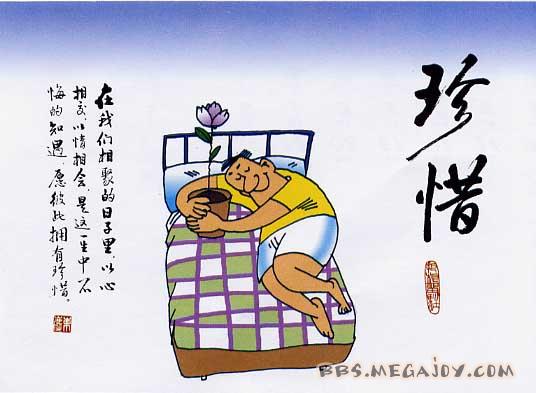 珍惜
在我们相聚的日子里，以心
相交，以情相会，是这一生中不
悔的知遇，愿彼此拥有珍惜。
BBS.MEGAJOY.COM